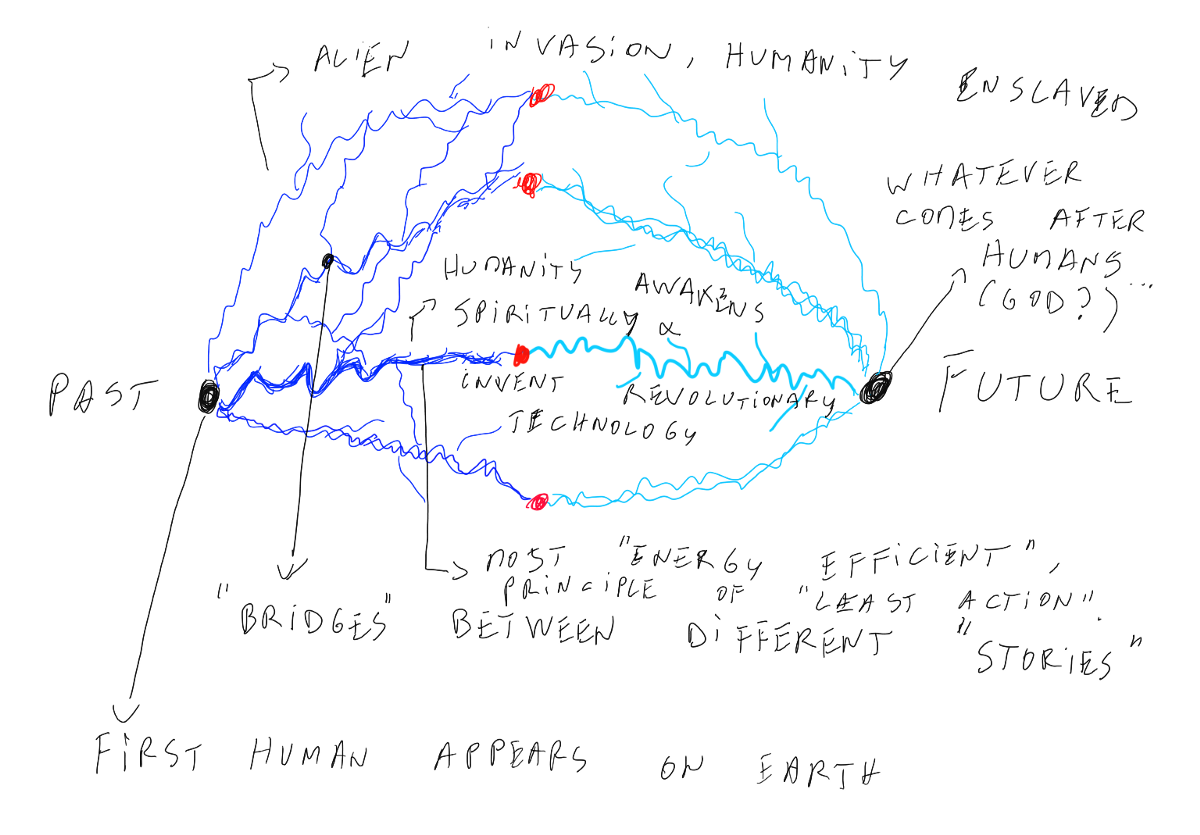 ALIEN INVASION, HUMANITY ENSLAVED
WHATEVER
COMES AFTER
HUMANS ...
(GOD?)
HUMANITY AWAKENS
SPIRITUALLY &
INVENT REVOLUTIONARY
TECHNOLOGY
PAST
FUTURE
MOST "ENERGY EFFICIENT",
PRINCIPLE OF "LEAST ACTION".
"BRIDGES" BETWEEN DIFFERENT "STORIES"
FIRST HUMAN APPEARS ON EARTH